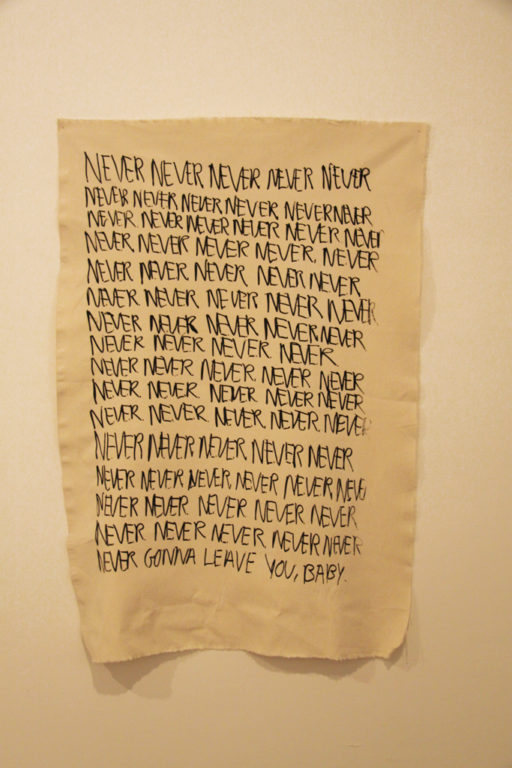 NEVER NEVER NEVER NEVER NEVER
NEVER NEVER NEVER NEVER NEVER NEVER
NEVER NEVER NEVER NEVER NEVER NEVER
NEVER NEVER NEVER NEVER. NEVER
NEVER NEVER NEVER NEVER NEVER
NEVER NEVER NEVER NEVER NEVER
NEVER NEVER NEVER NEVER NEVER
NEVER NEVER NEVER NEVER
NEVER NEVER NEVER NEVER NEVER
NEVER NEVER NEVER NEVER NEVER
NEVER NEVER NEVER NEVER NEVER
NEVER NEVER NEVER NEVER NEVER
NEVER NEVER NEVER NEVER NEVER NEVER
NEVER NEVER NEVER NEVER NEVER
NEVER NEVER NEVER NEVER NEVER
NEVER GONNA LEAVE YOU, BABY.